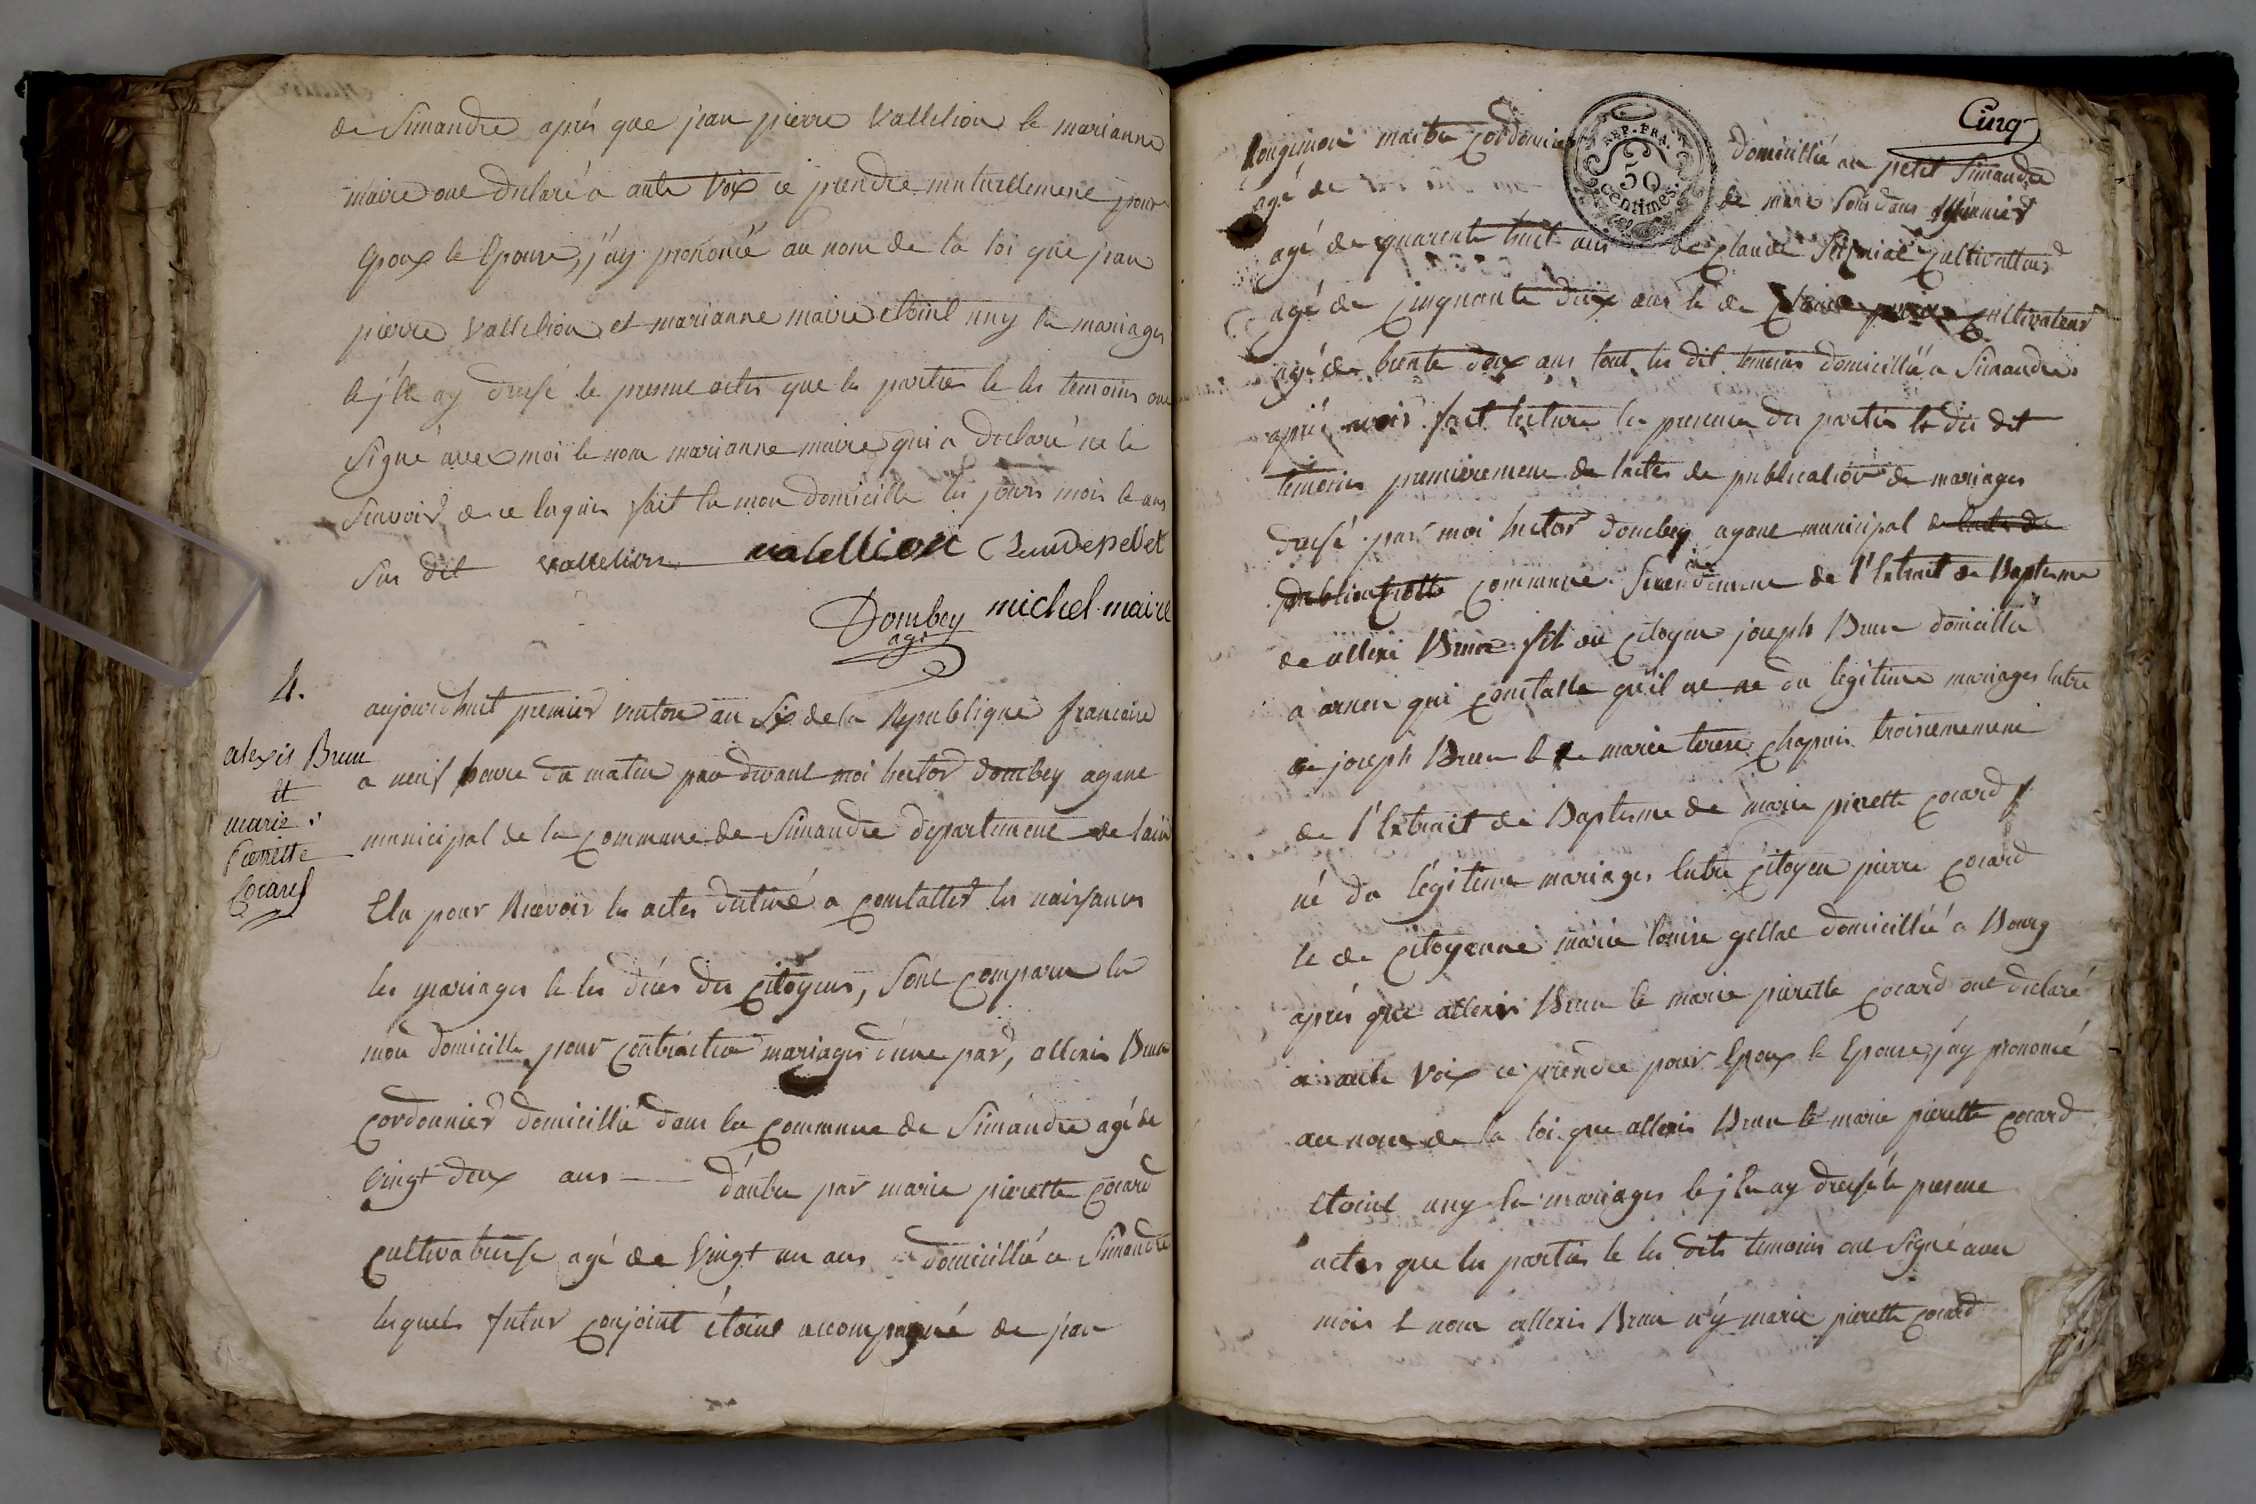 de Simandre aprés que jean pierre Vallelion le marianne
maire one declaré a aute voix ce prendre mutuellement pour
Epoux le Epouse, j'ay prononcé au nom de la loi que jean
pierre Vallelion et marianne maire etoint uny en mariages
le j'en ay dressé le presene actes que les parties le les temoins one
Signé avec moi le non marianne maire qui a declaré ne le
Scavoir de ce Enquis fait en mon domicille les jours mois le ans
Sus dit vallelion vallellion Claude pellet
Dombey michel maire
agt
4.
alexis Brun
et
marie
pierrette
Cocard
aujourdhuit premier ventose an Six de la Republique francaire
a neuf heure du matin par devant moi hector dombey agane
municipal de la Commune de Simandre departemene de lain
Elu pour Recevoir les actes destiné a Constatter les naissances
les mariages le les déces des Citoyens, Sont Comparu en
mon domicille pour Contracter mariages d'une par, allexis Brun
Cordonnier domicillié dans la Commune de Simandre agé de
Vingt deux ans d'autre par marie pierette Cocard
Cultivatrise agé de Vingt un ans domicillié a Simandre
lesquels futur Conjoint étoint accompagné de jean
Cinq
maitre Cordonnier domicillié au petit Simandre
REP. FRA.
50
centimes.
agé de
agé de quarente huit ans de Claude Cultivatteur
agé de Cinquante deux ans le de Cultivateur
agé de trente deux ans tout les dit temoins domicillié a Simandre
aprié avoir fait lecture en presence des parties le des dit
temoins premierement de lactes de publication de mariages
dressé par moi hector dombey agane municipal
Commune Secondemene de l'Extrait de Baptesme
de allexi Brun fil du Citoyen joseph Brun domicillié
a qui Constatte qu'il ne du legitime mariages Entre
joseph Brun le marie terese Chapuis troisiememene
de l'Extrait de Baptesme de marie pierette Cocard
né du légitime mariages Entre Citoyen pierre Cocard
le de Citoyenne marie louise domicillié a Bourg
aprés que allexis Brun le marie pierette Cocard one declaré
a aute Voix ce prendre pour Epoux le Epouse, j'ay prononcé
au nom de la loi que allexis Brun le marie pierette Cocard
etoint uny en mariages le j'en ay dressé le presene
actes que les parties le les dits temoins one Signé avec
moi le non allexis Brun n'y marie pierette Cocard